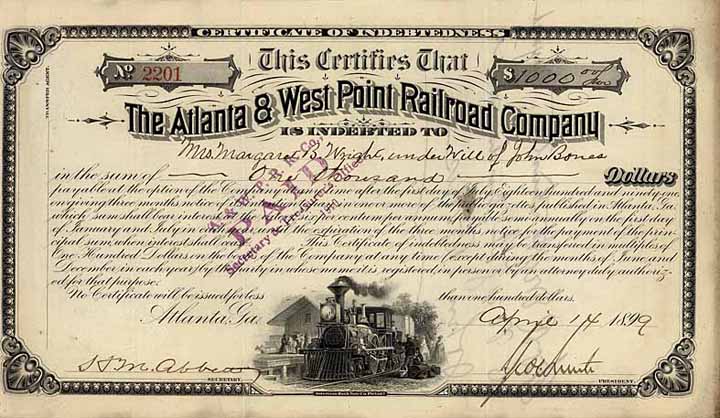 CERTIFICATE OF INDEBTEDNESS
TRANSFER AGENT.
This Certifies That
No 2201
$1000 00/100
The Atlanta & West Point Railroad Company
IS INDEBTED TO
Mrs Margaret B. Wright, under Will of John Bones
in the sum of One Thousand Dollars
payable at the option of the Company at any time after the first day of July Eighteen Hundred and ninety one
on giving three months notice of in one or more of the public gazettes published in Atlanta, Ga.
which sum shall bear interest per centum per annum, payable semi annually on the first day
of January and July in each year, the expiration of the three months notice for the payment of the prin-
cipal sum, when interest shall cease. This Certificate of indebtedness may be transferred in multiples of
One Hundred Dollars on the of the Company at any time (except during the months of June and
December in each year) by the party in whose name it is registered, in person or by an attorney duly authoriz-
ed for that purpose.
No Certificate will be issued for less than one hundred dollars.
Atlanta, Ga. April 14 1899
A. & W. P. R. R. Co.
PAID
Secretary & Treasurer's Office
SECRETARY.
PRESIDENT.